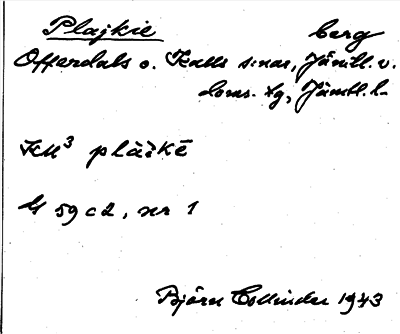 Plajkie berg
Offerdals o. Kalls s:nar, Jämtl. v.
doms. tg, Jämtl. l.
KU³ plàìkē
G 59 c d, nr 1
Björn Collinder 1943